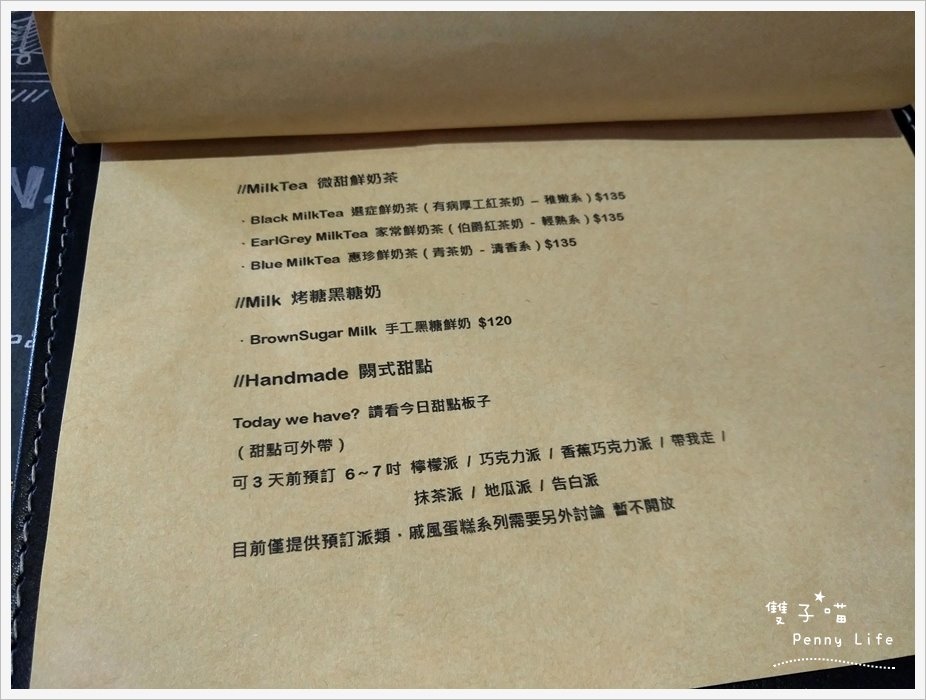 //MilkTea 微甜鮮奶茶
· Black MilkTea 選症鮮奶茶 ( 有病厚工紅茶奶 – 稚嫩系 ) $135
· EarlGrey MilkTea 家常鮮奶茶 ( 伯爵紅茶奶 - 輕熟系 ) $135
· Blue MilkTea 惠珍鮮奶茶 ( 青茶奶 - 清香系 ) $135
//Milk 烤糖黑糖奶
· BrownSugar Milk 手工黑糖鮮奶 $120
//Handmade 闕式甜點
Today we have? 請看今日甜點板子
( 甜點可外帶 )
可 3 天前預訂 6～7 吋 檸檬派 / 巧克力派 / 香蕉巧克力派 / 帶我走 /
抹茶派 / 地瓜派 / 告白派
目前僅提供預訂派類．戚風蛋糕系列需要另外討論 暫不開放
雙子喵
Penny Life